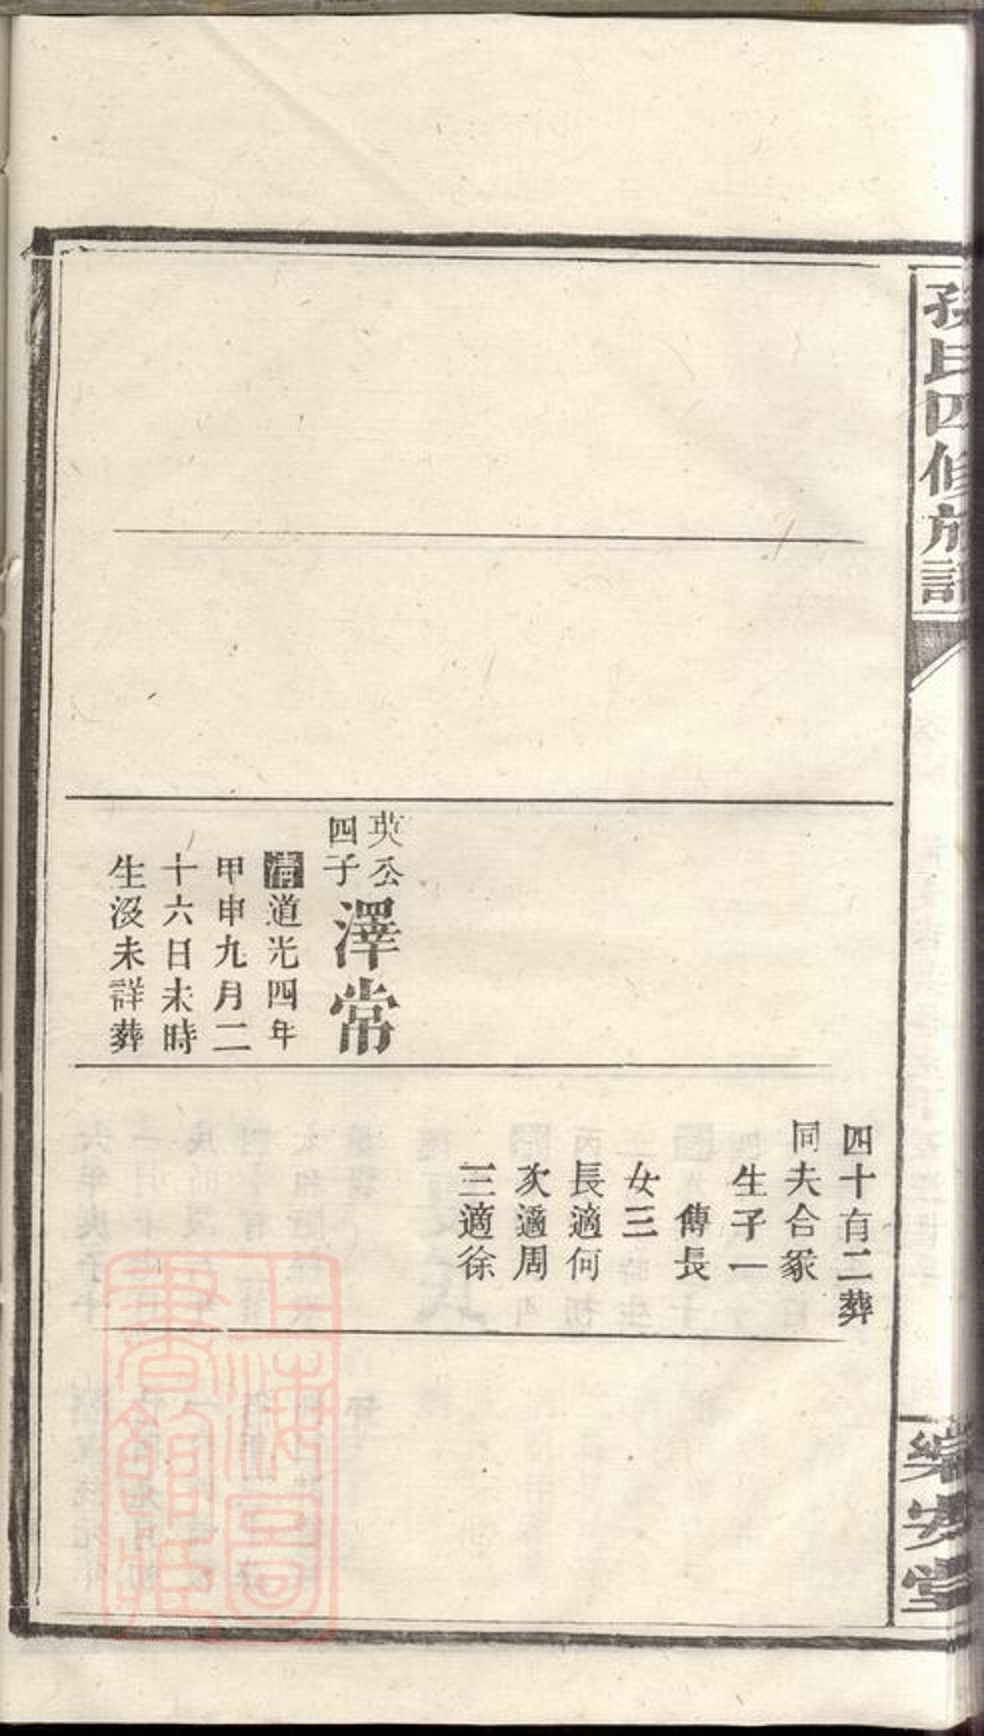 孫氏四修族譜
樂安堂
英公
四子
澤常
清道光四年
甲申九月二
十六日未時
生沒未詳葬
四十有二葬
同夫合冢
生子一
傳長
女三
長適何
次適周
三適徐
上海圖
書館藏